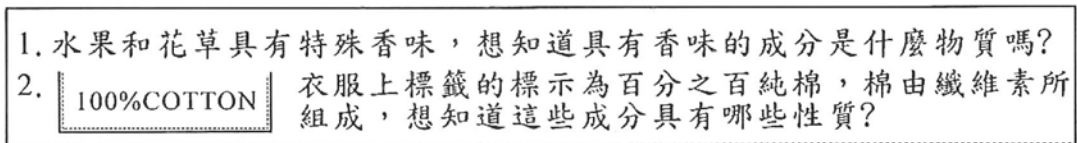 1. 水果和花草具有特殊香味，想知道具有香味的成分是什麼物質嗎?
2. 100%COTTON 衣服上標籤的標示為百分之百純棉，棉由纖維素所
組成，想知道這些成分具有哪些性質?